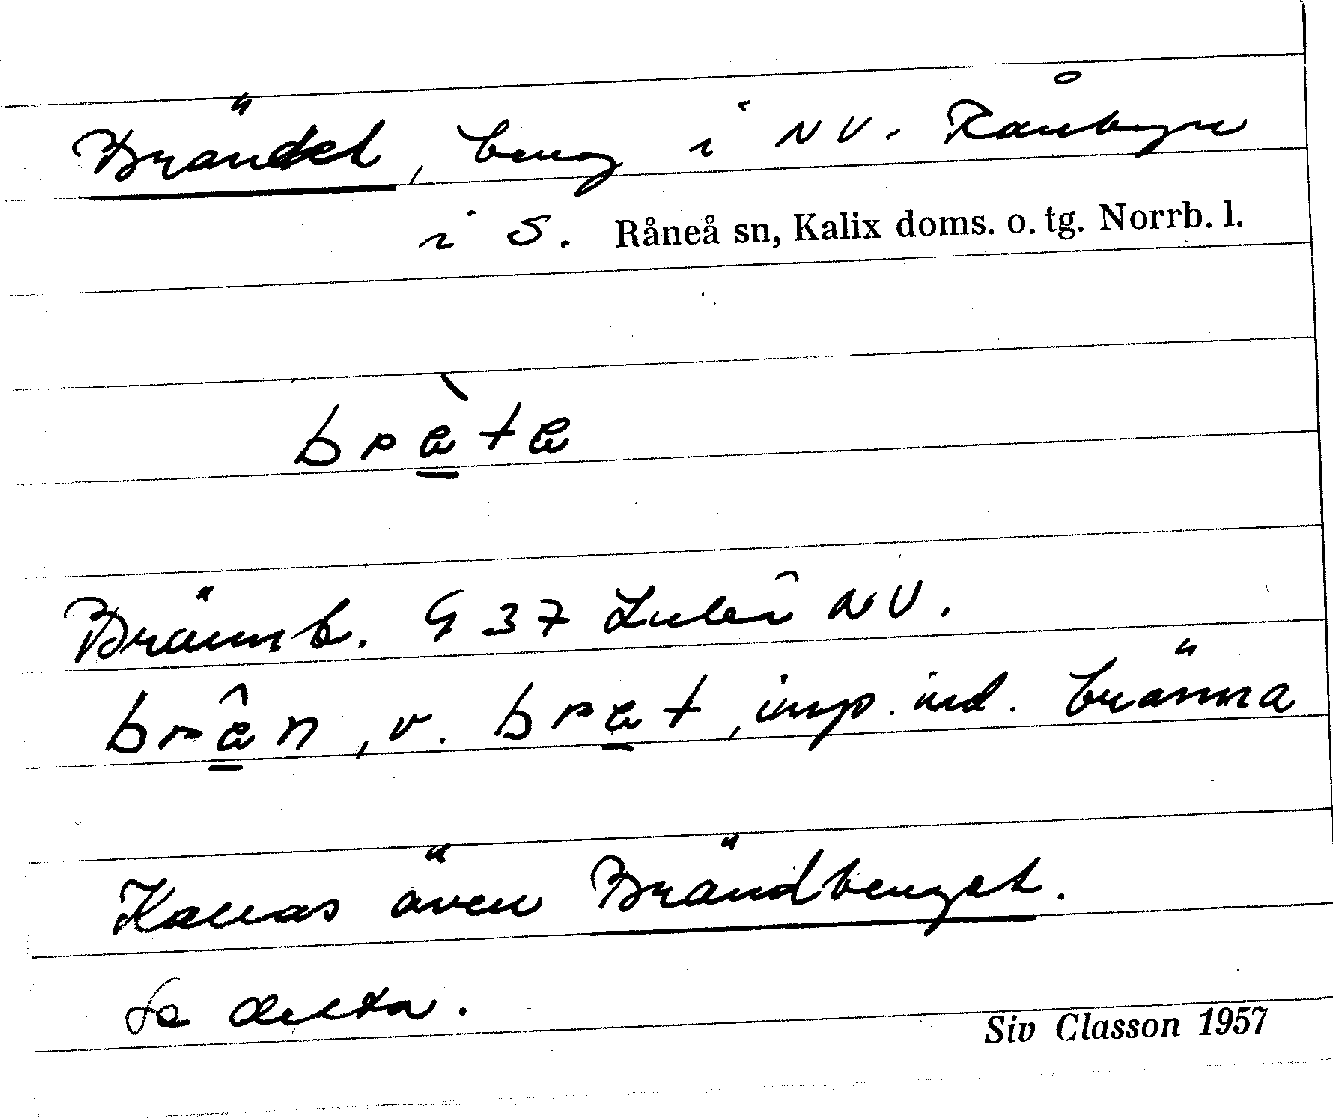 Brändet, berg i NV. Rånbyn
i S. Råneå sn, Kalix doms. o. tg. Norrb. l.
bràte
Brännb. G 37 Luleå NV.
brân, v. brat, imp. ind. bränna
Kallas även Brändberget.
Se detta.
Siv Classon 1957